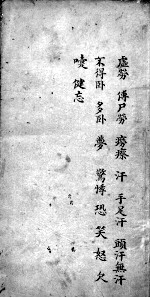 虛勞 傳尸勞 癆瘵 汗 手足汗 頭汗無汗
不得臥 多臥 夢 驚悸 恐 笑 怒 欠
嚏 健忘